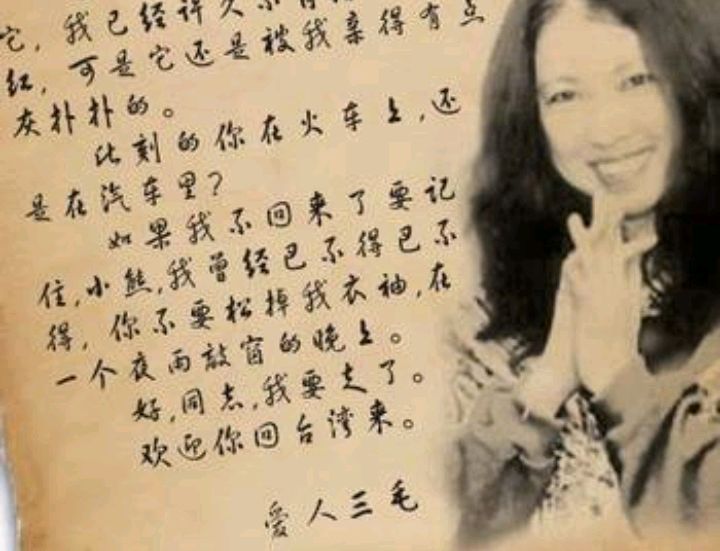 它，我已经许久不
红，可是它还是被我亲得有点
灰扑扑的。
此刻的你在火车上，还
是在汽车里？
如果我不回来了要记
住，小熊，我曾经巴不得巴不
得，你不要松掉我衣袖，在
一个夜雨敲窗的晚上。
好，同志，我要走了。
欢迎你回台湾来。
爱人三毛